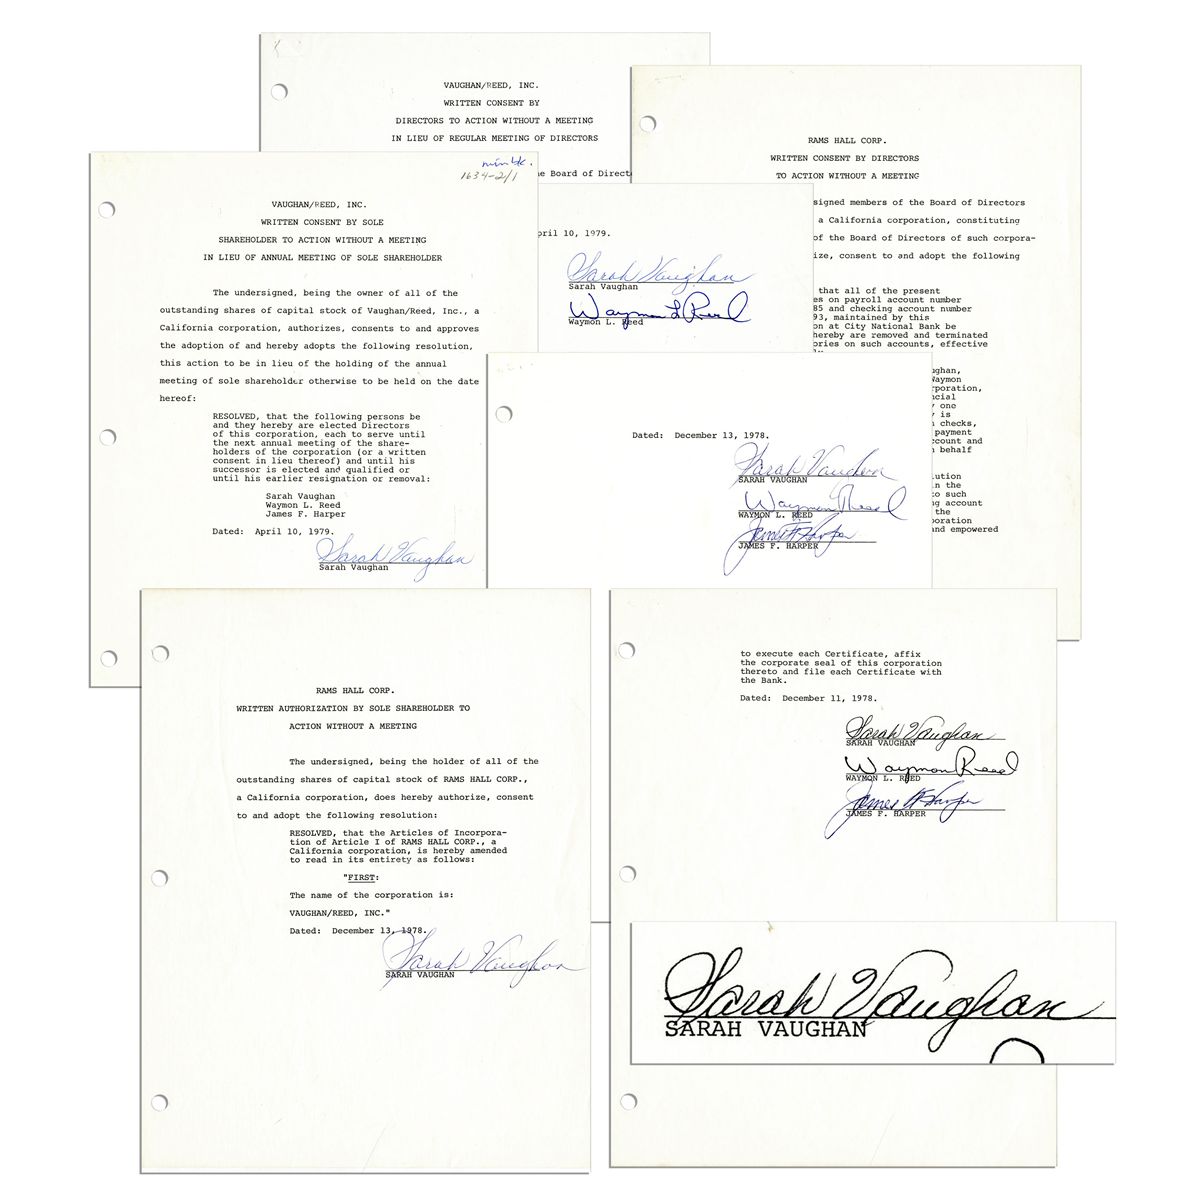 VAUGHAN/REED, INC.
WRITTEN CONSENT BY
DIRECTORS TO ACTION WITHOUT A MEETING
IN LIEU OF REGULAR MEETING OF DIRECTORS
the Board of Direct
RAMS HALL CORP.
WRITTEN CONSENT BY DIRECTORS
TO ACTION WITHOUT A MEETING
signed members of the Board of Directors
a California corporation, constituting
of the Board of Directors of such corpora-
ize, consent to and adopt the following
that all of the present
es on payroll account number
85 and checking account number
93, maintained by this
on at City National Bank be
hereby are removed and terminated
ories on such accounts, effective
ly.
ughan,
Waymon
rporation,
ncial
y one
y is
n checks,
payment
ccount and
behalf
lution
in the
to such
ng account
the
poration
and empowered
min bk.
1634-2/1
VAUGHAN/REED, INC.
WRITTEN CONSENT BY SOLE
SHAREHOLDER TO ACTION WITHOUT A MEETING
IN LIEU OF ANNUAL MEETING OF SOLE SHAREHOLDER
The undersigned, being the owner of all of the
outstanding shares of capital stock of Vaughan/Reed, Inc., a
California corporation, authorizes, consents to and approves
the adoption of and hereby adopts the following resolution,
this action to be in lieu of the holding of the annual
meeting of sole shareholder otherwise to be held on the date
hereof:
RESOLVED, that the following persons be
and they hereby are elected Directors
of this corporation, each to serve until
the next annual meeting of the share-
holders of the corporation (or a written
consent in lieu thereof) and until his
successor is elected and qualified or
until his earlier resignation or removal:
Sarah Vaughan
Waymon L. Reed
James F. Harper
Dated: April 10, 1979.
Sarah Vaughan
Sarah Vaughan
pril 10, 1979.
Sarah Vaughan
Sarah Vaughan
Waymon L Reed
Waymon L. Reed
Dated: December 13, 1978.
Sarah Vaughan
SARAH VAUGHAN
Waymon Reed
WAYMON L. REED
James F Harper
JAMES F. HARPER
RAMS HALL CORP.
WRITTEN AUTHORIZATION BY SOLE SHAREHOLDER TO
ACTION WITHOUT A MEETING
The undersigned, being the holder of all of the
outstanding shares of capital stock of RAMS HALL CORP.,
a California corporation, does hereby authorize, consent
to and adopt the following resolution:
RESOLVED, that the Articles of Incorpora-
tion of Article I of RAMS HALL CORP., a
California corporation, is hereby amended
to read in its entirety as follows:
"FIRST:
The name of the corporation is:
VAUGHAN/REED, INC."
Dated: December 13, 1978.
Sarah Vaughan
SARAH VAUGHAN
to execute each Certificate, affix
the corporate seal of this corporation
thereto and file each Certificate with
the Bank.
Dated: December 11, 1978.
Sarah Vaughan
SARAH VAUGHAN
Waymon Reed
WAYMON L. REED
James F Harper
JAMES F. HARPER
Sarah Vaughan
SARAH VAUGHAN